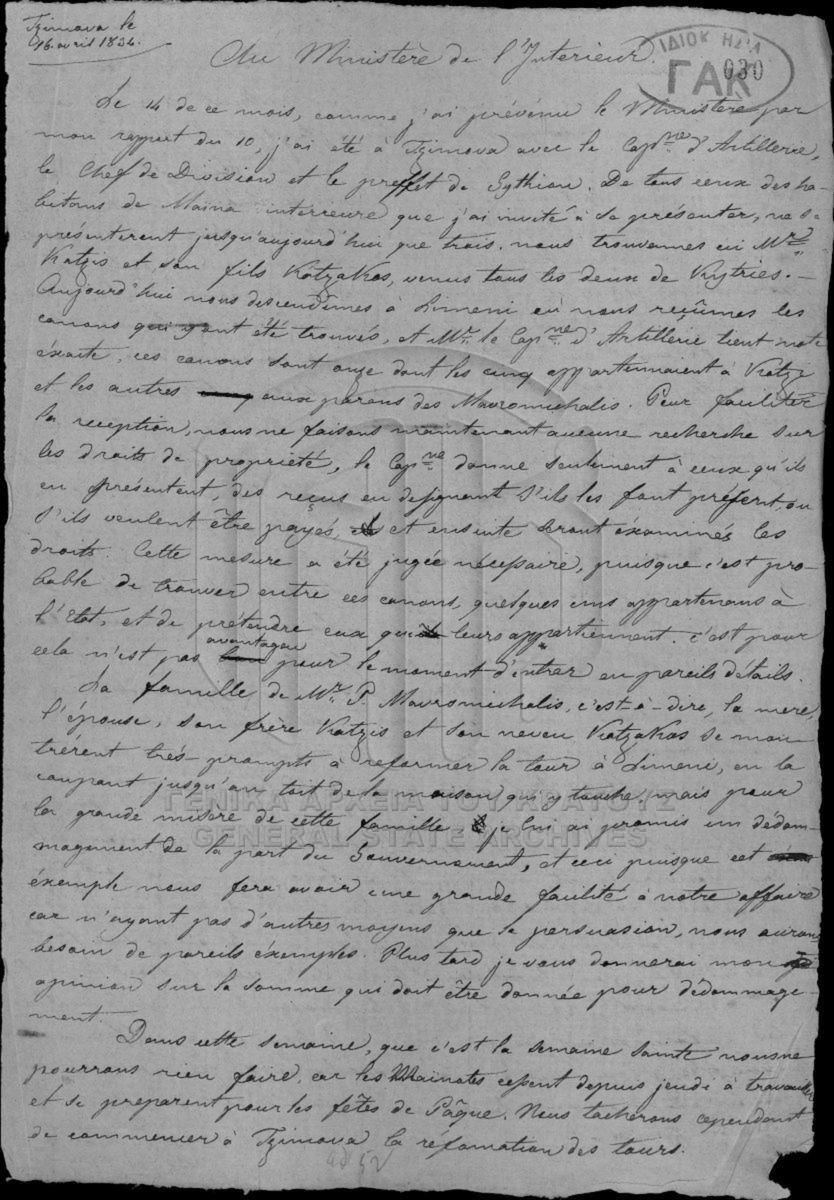 Tzimova le
16. avril 1834.
ΙΔΙΟΚ ΗΛΙΑ
ΓΑΚ 030
Au Ministère de l'Interieur.
Le 14 de ce mois, comme j'ai prévénu le Ministere par
mon rapport du 10, j'ai été à Tzimova avec le Cap.ne d'Artillerie,
le Chef de Division et le preffet de Gythion. De tous ceux des ha-
bitans de Maina interieure que j'ai invité à se présenter, ne se
présenterent jusqu'aujourd'hui que trois. nous trouvames ici Mr.
Katzis et son fils Katzakos, venus tous les deux de Kytries.-
Aujourd'hui nous descendîmes à Limeni où nous reçûmes les
canons qui y ont été trouvés, et Mr. le Cap.ne d'Artillerie tient note
éxaite; ces canons sont onze dont les cinq appartennaient à Katzi
et les autres aux parens des Mavromichalis. Pour faciliter
la reception, nous ne faisons maintenant aucune recherche sur
les droits de propriété, le Cap.ne donne seulement à ceux qu'ils
en présentent, des reçus en désignant s'ils les font présent, ou
s'ils veulent être payés, et ensuite seront éxaminés les
droits. Cette mesure a été jugée nécessaire, puisque c'est pro-
bable de trouver entre ces canons, quelques uns appartenans à
l'Etat, et de prétendre eux que leurs appartiennent. c'est pour
avantageu
cela n'est pas pour le moment d'entrer en pareils détails.
La famille de Mr. P. Mavromichalis, c'est-à-dire, la mere,
l'épouse, son frère Katzis et son neveu Katzakos se mon-
trérent trés-prompts à reformer la tour à Limeni, en la
coupant jusqu'au toit de la maison qui y touche, mais pour
la grande misère de cette famille je lui ai promis un dédom-
magement de la part du Gouvernement, et ceci puisque cet
éxemple nous fera avoir une grande facilité à notre affaire
car n'ayant pas d'autres moyens que la persuasion, nous aurons
besoin de pareils éxemples. Plus tard je vous donnerai mon
opinion sur la somme qui doit être donnée pour dédommage-
ment.
Dans cette semaine, que c'est la semaine sainte nous ne
pourrons rien faire, car les Mainotes cessent depuis jeudi à travailler
et se preparent pour les fêtes de Pâque. Nous tacherons cependant
de commencer à Tzimova la reformation des tours.
ΓΕΝΙΚΑ ΑΡΧΕΙΑ ΤΟΥ ΚΡΑΤΟΥΣ
GENERAL STATE ARCHIVES